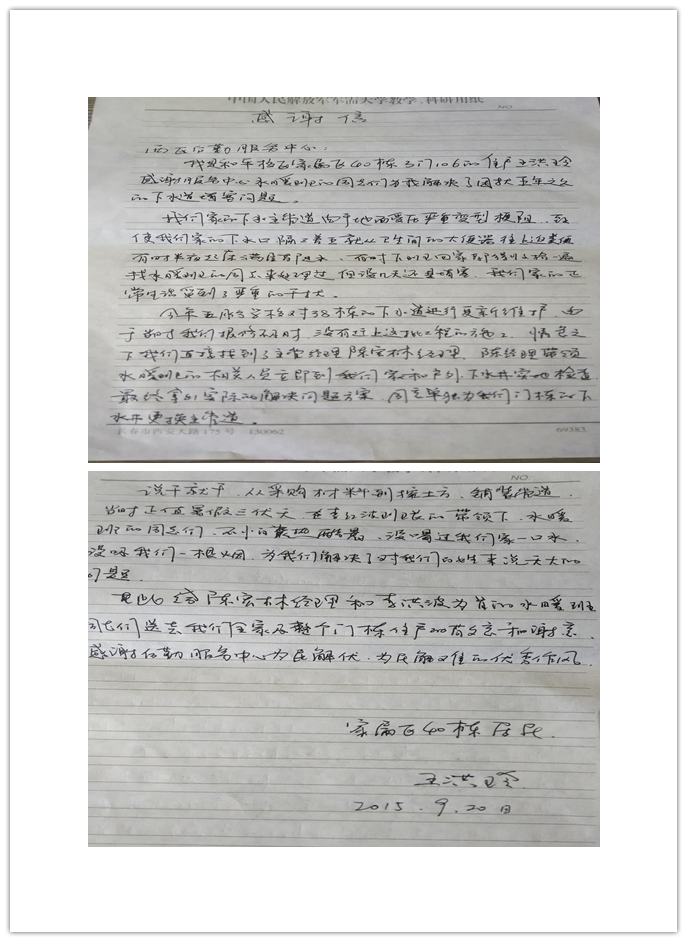 中国人民解放军军需大学教学、科研用纸
NO
感谢信
西区后勤服务中心:
我是和平校区家属区40栋3门106的住户王洪玲
感谢服务中心水暖班的同志们为我解决了困扰五年之久
的下水道堵塞问题。
我们家的下水主管道由于地面受压严重变型梗阻,致
使我们家的下水口隔三差五就从卫生间的大便器往上返粪便
有时半夜起床满屋
找水暖班的同志来处理过但没几天还是堵塞,我们家的正
常生活受到了严重的干扰。
今年五月份学校对38栋的下水道进行更新维护,由
于当时我们报修不及时,没有赶上这批工程的施工,情急之
下我们直接找到了主管经理陈宏林经理,陈经理带领
水暖班的相关人员立即到我们家和户外下水井实地检查
最终拿出实际的解决问题方案,同意单独为我们门栋的下
水井更换主管道。
长春市西安大路175号 130062 69383
NO
说干就干,从采购材料到挖土方、铺装管道,
当时正值暑假三伏天,在李洪波班长的带领下,水暖
班的同志们,不怕酷暑,没喝过我们家一口水,
没吸我们一根烟,为我们解决了对我们百姓来说天大的
问题。
在此给陈宏林经理和李洪波为首的水暖班
同志们送去我们全家及整个门栋住户的敬意和谢意,
感谢后勤服务中心为民解忧、为民解难的优秀作风
家属区40栋居民
王洪玲
2015.9.20日